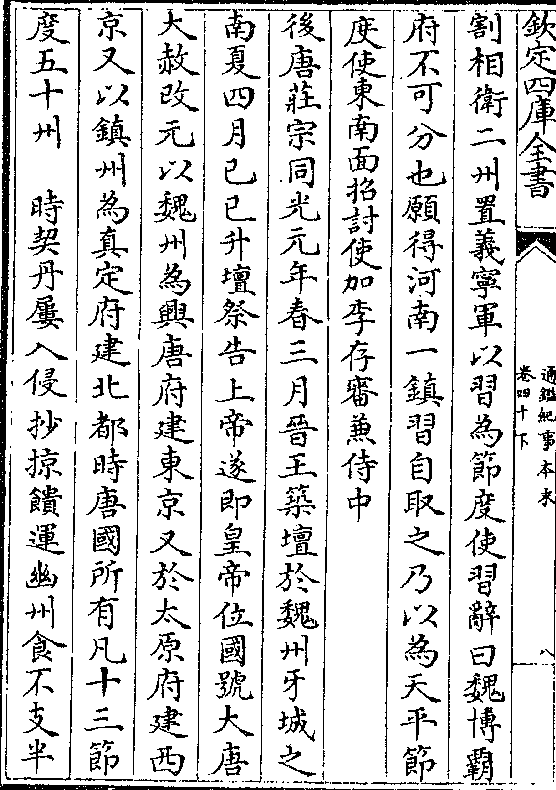 欽定四庫全書
通鑑紀事本末
卷四十下
八
割相衛二州置義寧軍以習為節度使習辭曰魏博覇
府不可分也願得河南一鎮習自取之乃以為天平節
度使東南面招討使加李存審兼侍中
後唐莊宗同光元年春三月晉王築壇於魏州牙城之
南夏四月已巳升壇祭告上帝遂即皇帝位國號大唐
大赦改元以魏州為興唐府建東京又於太原府建西
京又以鎮州為真定府建北都時唐國所有凡十三節
度五十州　時契丹屢入侵抄掠饋運幽州食不支半